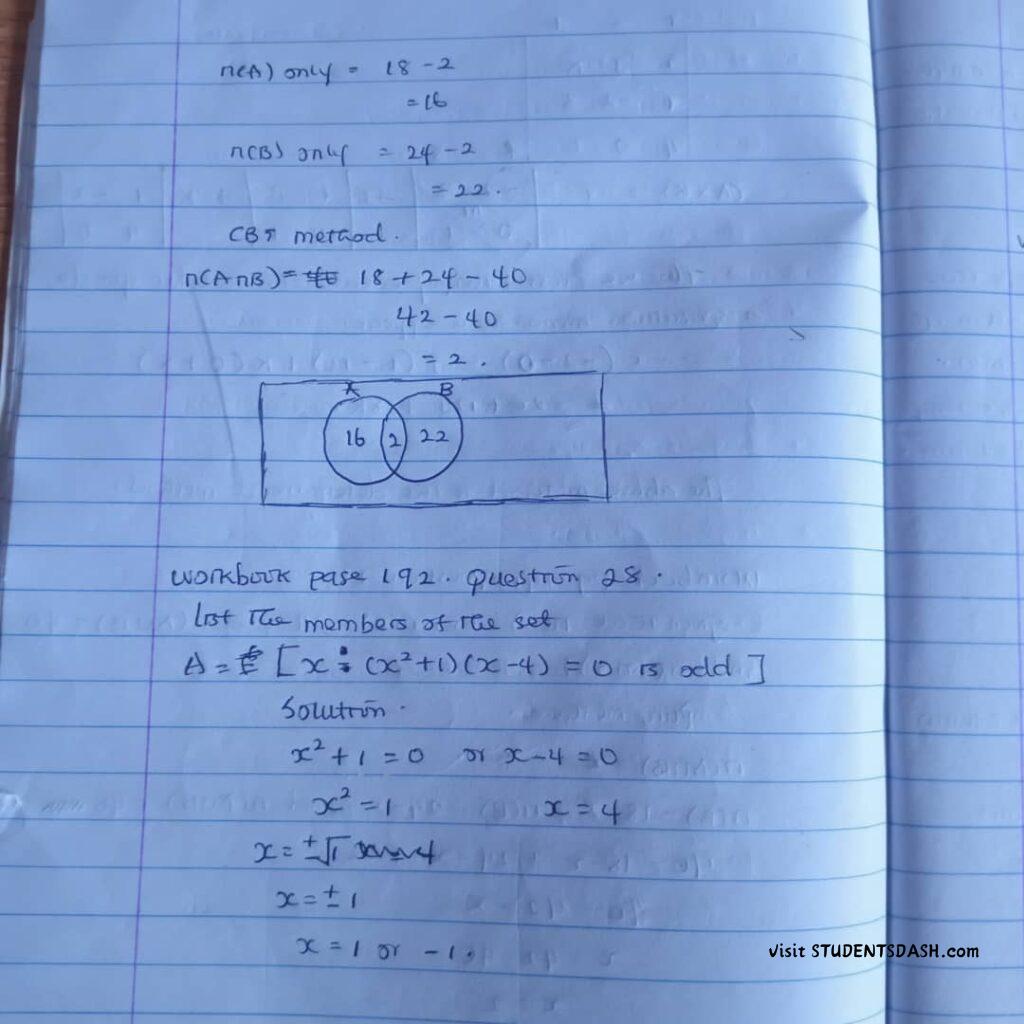 n(A) only = 18 - 2
= 16
n(B) only = 24 - 2
= 22.
CBT method.
n(A∩B) = 18 + 24 - 40
42 - 40
= 2.
A B
16 2 22
workbook page 192. Question 28.
list The members of the set
A = [x : (x²+1)(x-4) = 0 is odd]
Solution.
x² + 1 = 0 or x-4 = 0
x² = 1 x = 4
x = ±√1
x = ± 1
x = 1 or -1.
visit STUDENTSDASH.com